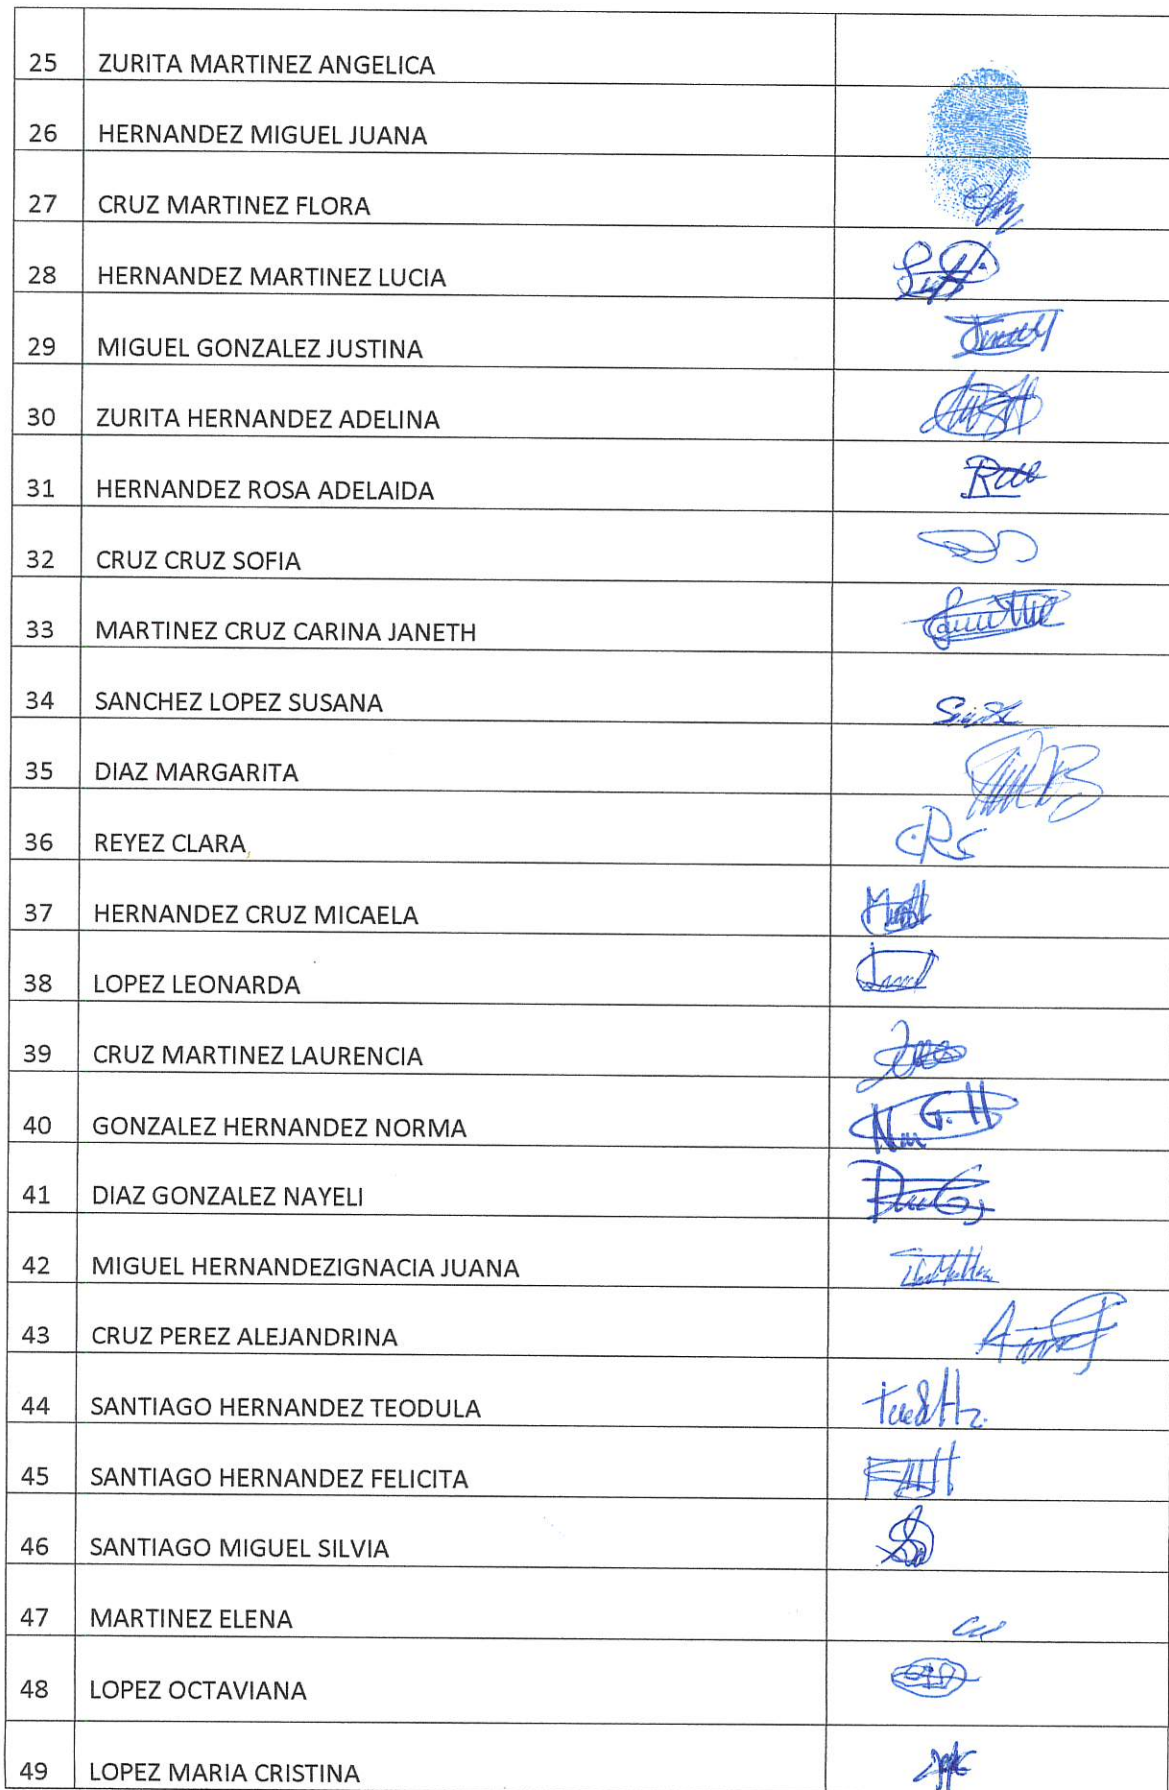 25 ZURITA MARTINEZ ANGELICA
26 HERNANDEZ MIGUEL JUANA
27 CRUZ MARTINEZ FLORA
28 HERNANDEZ MARTINEZ LUCIA
29 MIGUEL GONZALEZ JUSTINA
30 ZURITA HERNANDEZ ADELINA
31 HERNANDEZ ROSA ADELAIDA
32 CRUZ CRUZ SOFIA
33 MARTINEZ CRUZ CARINA JANETH
34 SANCHEZ LOPEZ SUSANA
35 DIAZ MARGARITA
36 REYEZ CLARA
37 HERNANDEZ CRUZ MICAELA
38 LOPEZ LEONARDA
39 CRUZ MARTINEZ LAURENCIA
40 GONZALEZ HERNANDEZ NORMA
41 DIAZ GONZALEZ NAYELI
42 MIGUEL HERNANDEZIGNACIA JUANA
43 CRUZ PEREZ ALEJANDRINA
44 SANTIAGO HERNANDEZ TEODULA
45 SANTIAGO HERNANDEZ FELICITA
46 SANTIAGO MIGUEL SILVIA
47 MARTINEZ ELENA
48 LOPEZ OCTAVIANA
49 LOPEZ MARIA CRISTINA